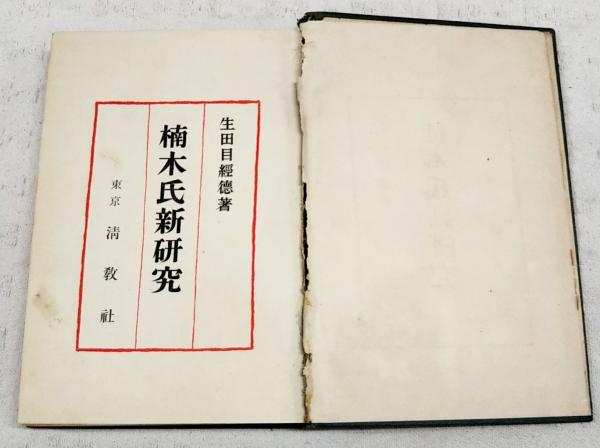 生田目經德著
楠木氏新研究
東京 淸敎社